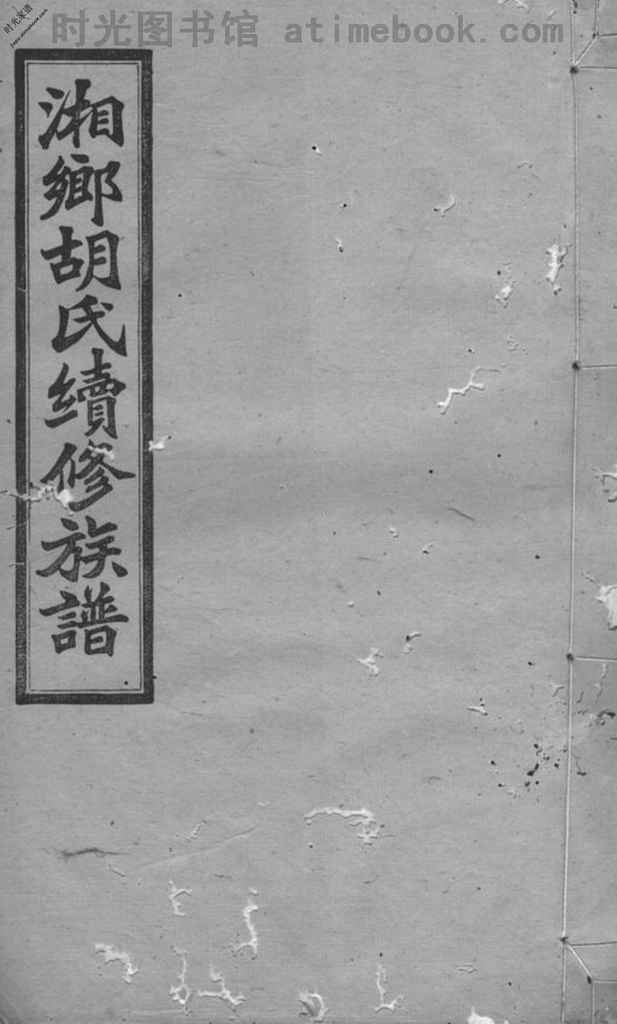 时光图书馆 atimebook.com
时光家谱
湘鄉胡氏續修族譜